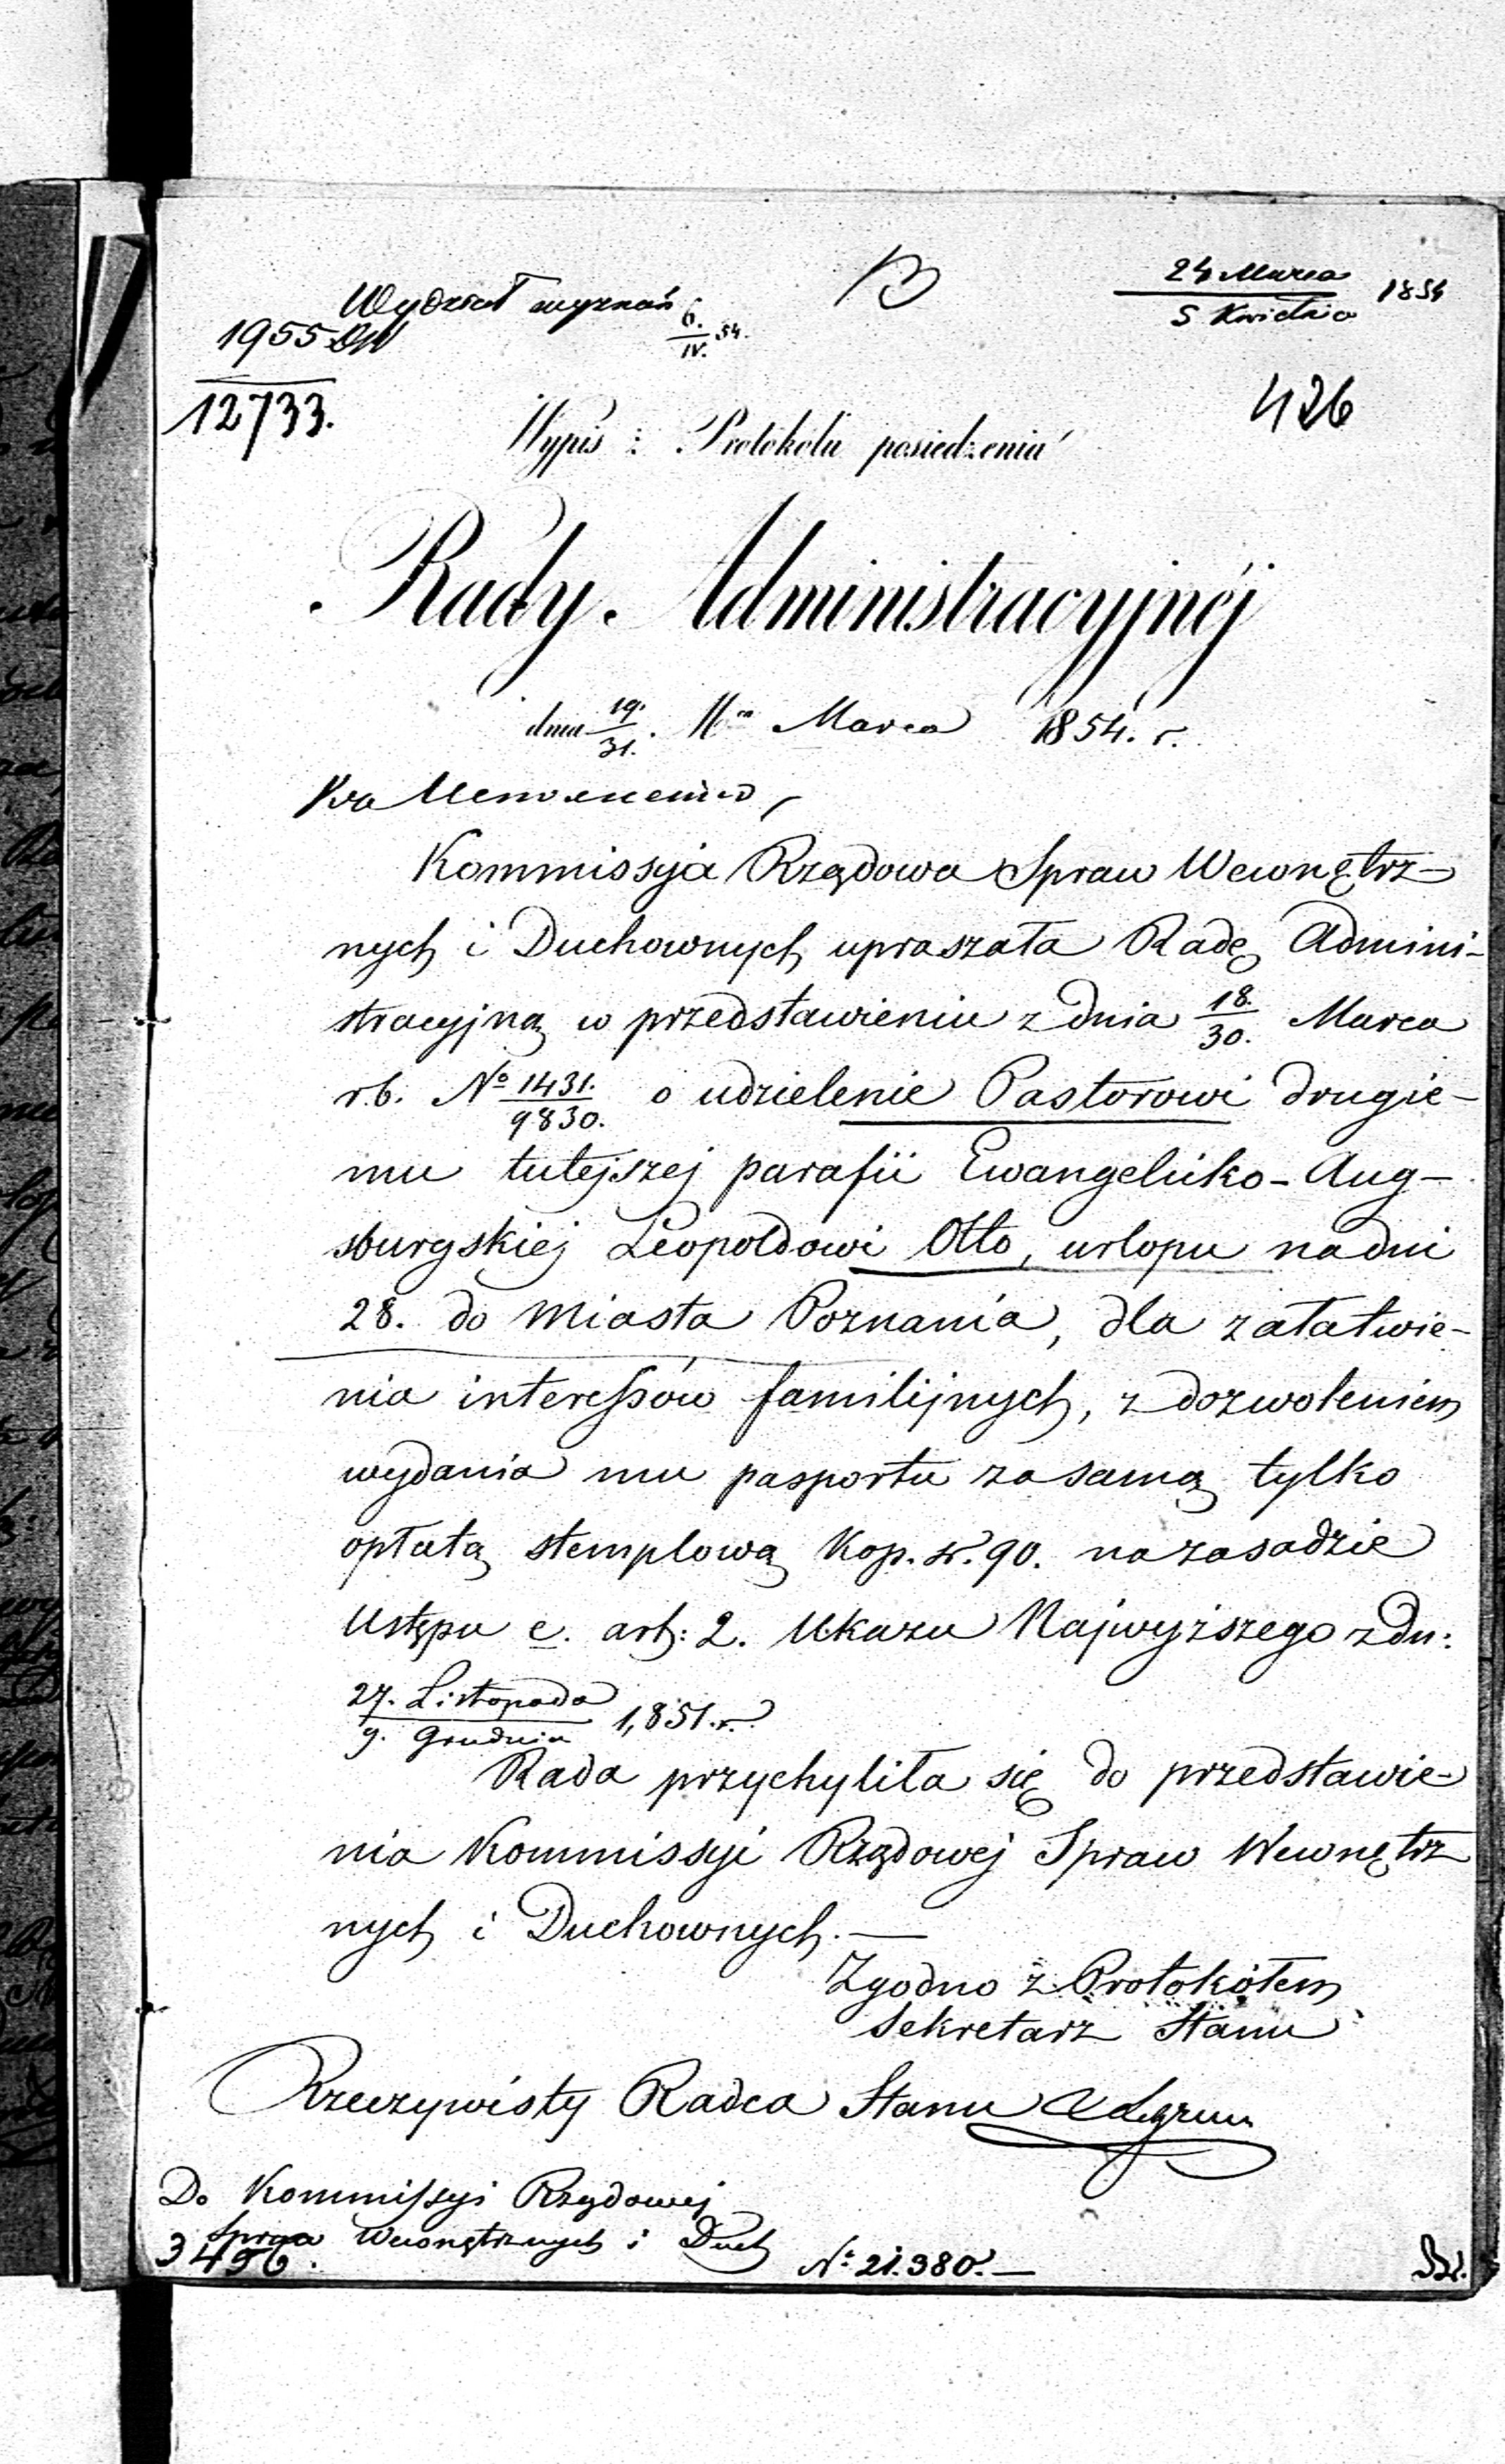 Wydział wyznań
6./IV. 54.
B
24 Marca / 5 Kwietnia 1854
1955 / 12733.
426
Wypis z Protokołu posiedzenia
Rady Administracyjnéj
dnia 19./31. Mca Marca 1854. r.
Kommissyja Rządowa Spraw Wewnętrz-
nych i Duchownych upraszała Radę Admini-
stracyjną w przedstawieniu z dnia 18./30. Marca
r.b. No 1431./9830. o udzielenie Pastorowi drugie-
mu tutejszej parafii Ewangelicko-Aug-
sburgskiej Leopoldowi Otto, urlopu na dni
28. do miasta Poznania, dla załatwie-
nia interessów familijnych, z dozwoleniem
wydania mu pasportu za samą tylko
opłatą stemplową Kop. sr. 90. na zasadzie
Ustępu c. art: 2. Ukazu Najwyższego z dn:
27. Listopada / 9. Grudnia 1,851. r.
Rada przychyliła się do przedstawie-
nia Kommissyi Rządowej Spraw Wewnętrz
nych i Duchownych. —
Zgodno z Protokółem
Sekretarz Stanu
Rzeczywisty Radca Stanu
Do Kommissyi Rządowej
Spraw Wewnętrznych i Duch
3496.
No 21.380. —